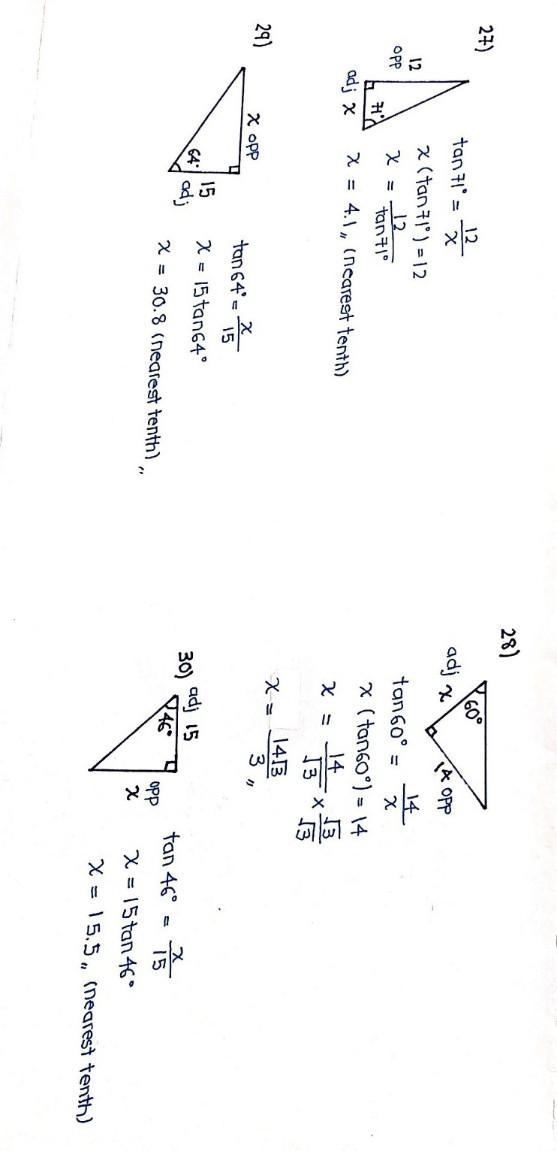 27)
12
opp
71°
adj x
tan71° = 12/x
x(tan71°) = 12
x = 12/tan71°
x = 4.1,, (nearest tenth)
28)
60°
adj x
14 opp
tan60° = 14/x
x(tan60°) = 14
x = 14/√3 × √3/√3
x = 14√3/3 ,,
29)
x opp
64°
15
adj
tan64° = x/15
x = 15tan64°
x = 30.8 (nearest tenth),,
30)
adj 15
46°
opp
x
tan 46° = x/15
x = 15tan46°
x = 15.5,, (nearest tenth)